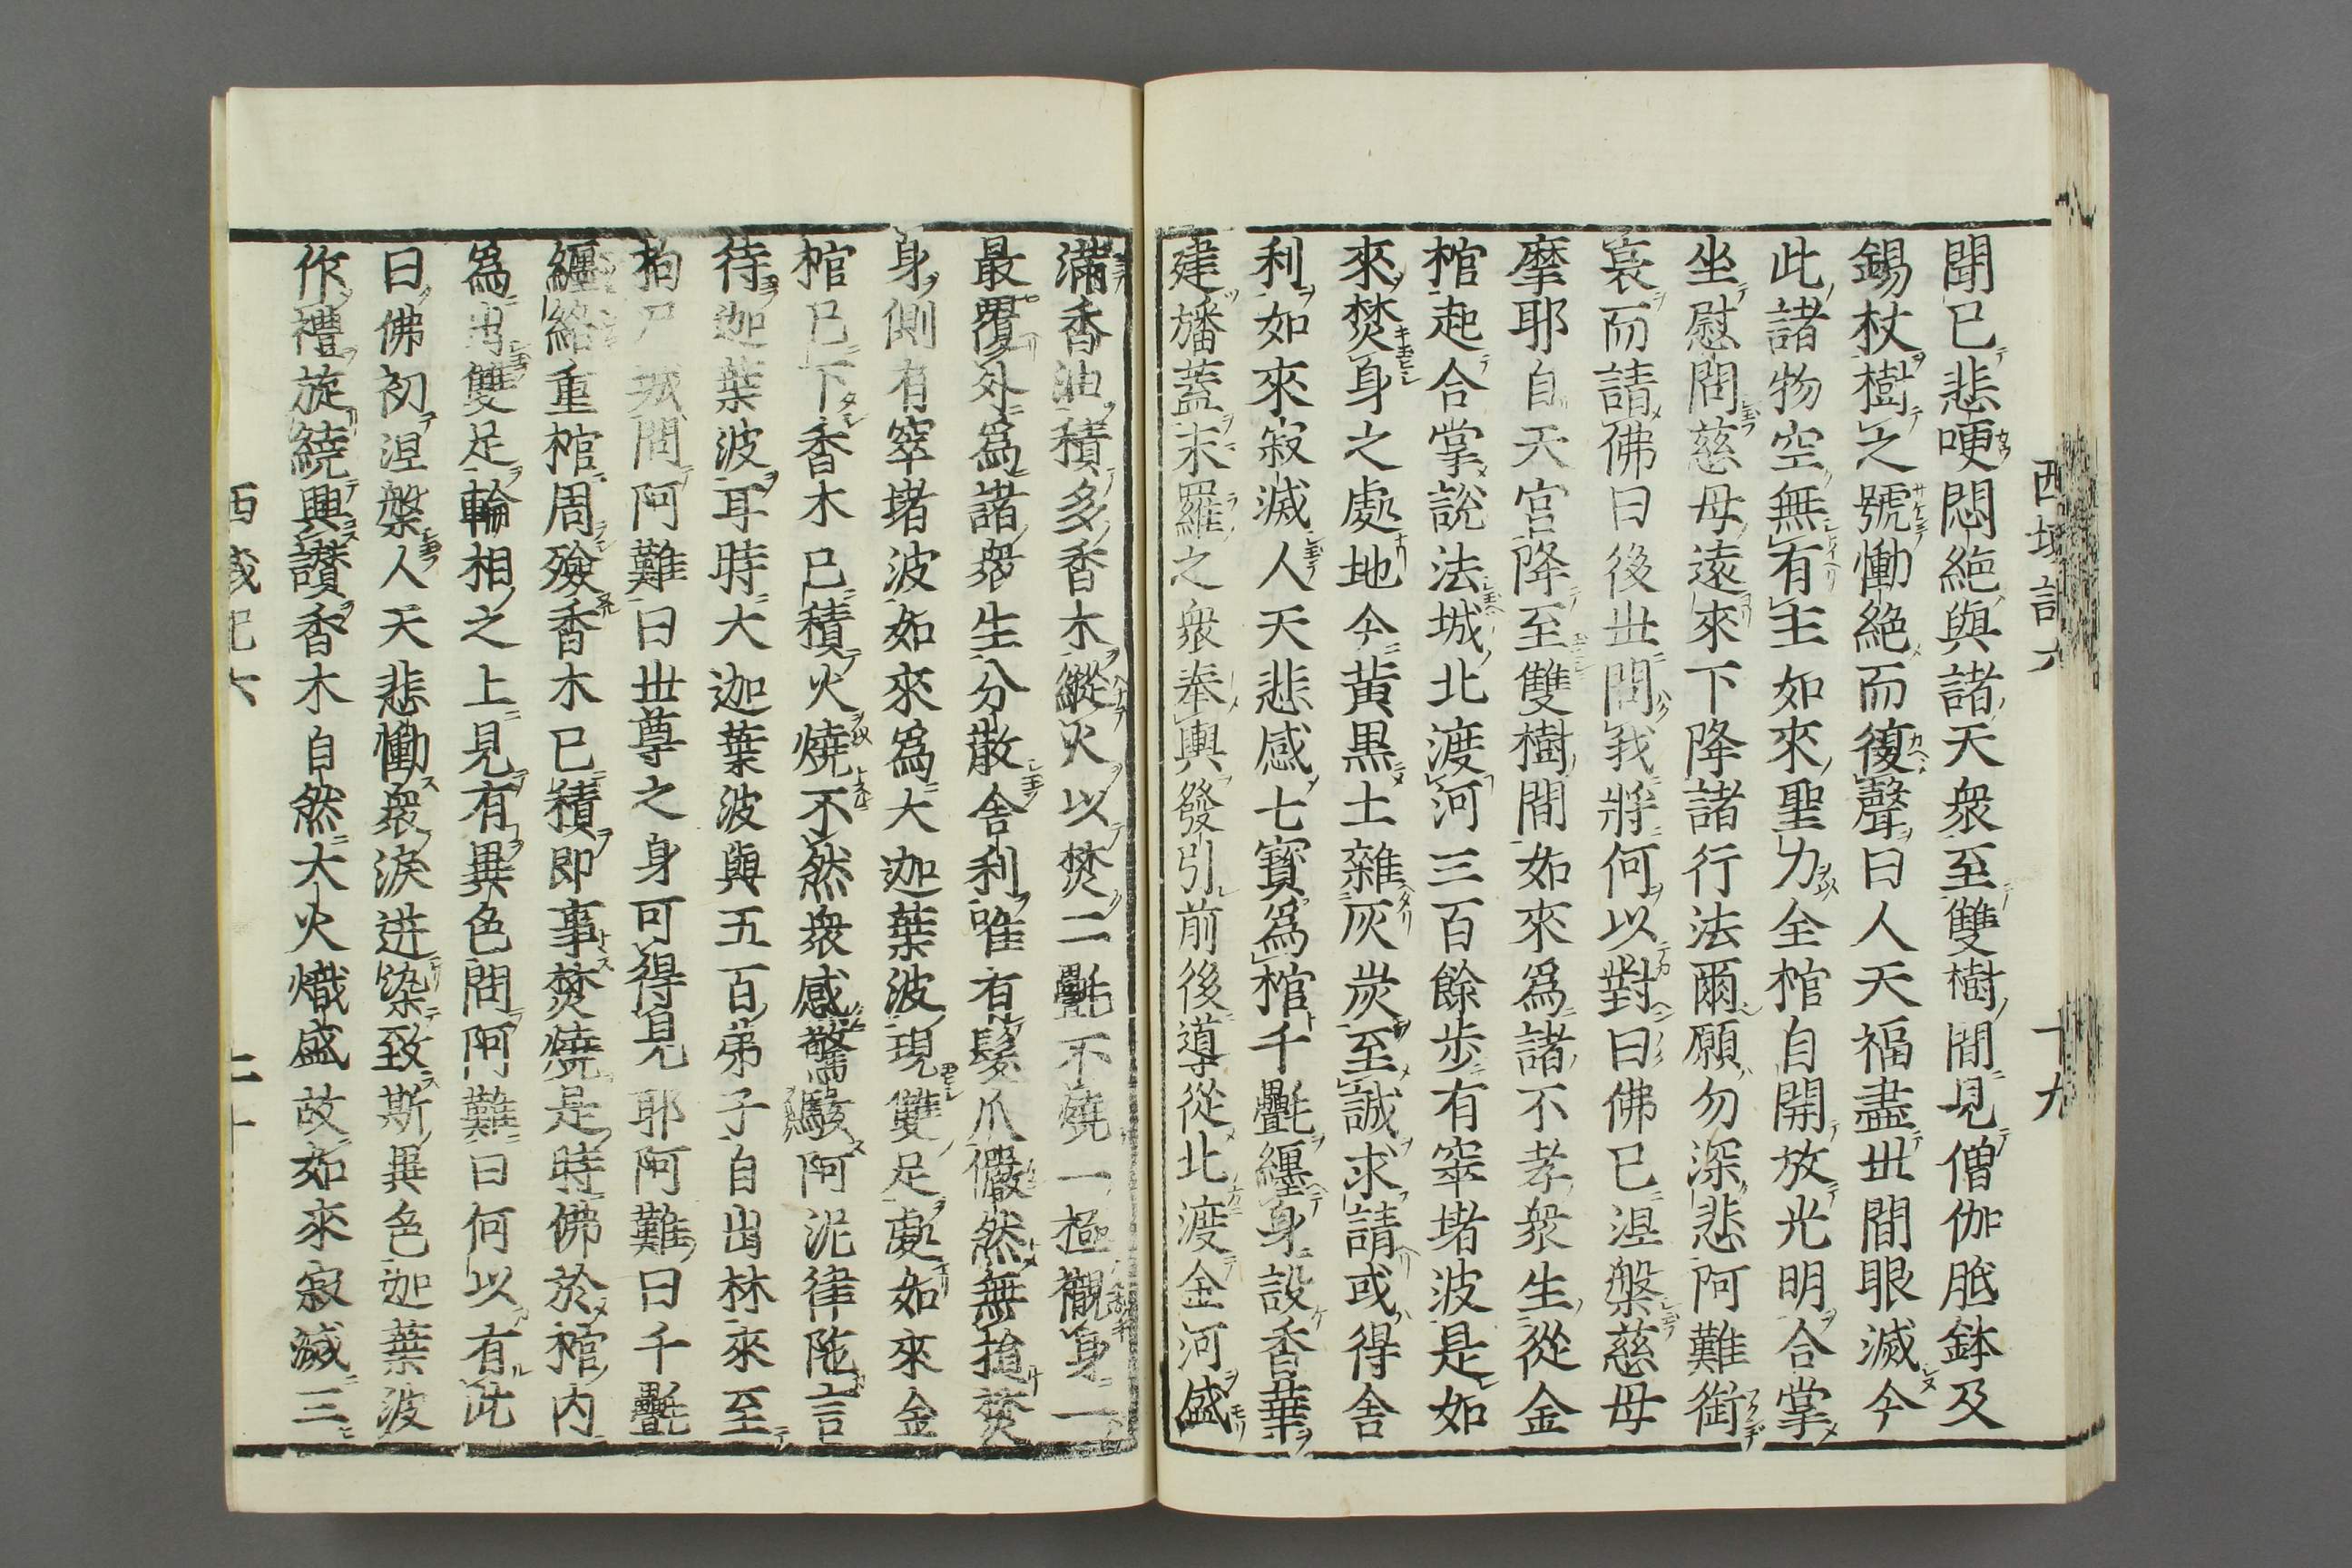 西域記六 十九
聞已悲哽悶絶與諸天衆至雙樹間見僧伽胝鉢及
錫杖樹之號慟絶而復聲曰人天福盡世間眼滅今
此諸物空無有主如來聖力全棺自開放光明合掌
坐慰問慈母遠來下降諸行法爾願勿深悲阿難銜
哀而請佛曰後世問我將何以對曰佛已涅槃慈母
摩耶自天宮降至雙樹間如來爲諸不孝衆生從金
棺起合掌説法城北渡河三百餘歩有窣堵波是如
來焚身之處地今黄黒土雜灰炭至誠求請或得舍
利如來寂滅人天悲感七寶爲棺千㲲纒身設香華
建旛蓋末羅之衆奉輿發引前後導從北渡金河盛
滿香油積多香木縱火以焚二㲲不燒一極襯身一
最覆外爲諸衆生分散舍利唯有髮爪儼然無損焚
身側有窣堵波如來爲大迦葉波現雙足處如來金
棺已下香木已積火燒不然衆感驚駭阿泥律陁言
待迦葉波耳時大迦葉波與五百弟子自出林來至
拘尸城問阿難曰世尊之身可得見耶阿難曰千㲲
纒絡重棺周殮香木已積即事焚燒是時佛於棺内
爲出雙足輪相之上見有異色問阿難曰何以有此
曰佛初涅槃人天悲慟衆淚迸染致斯異色迦葉波
作禮旋繞興讃香木自然大火熾盛故如來寂滅三
西域記六 二十